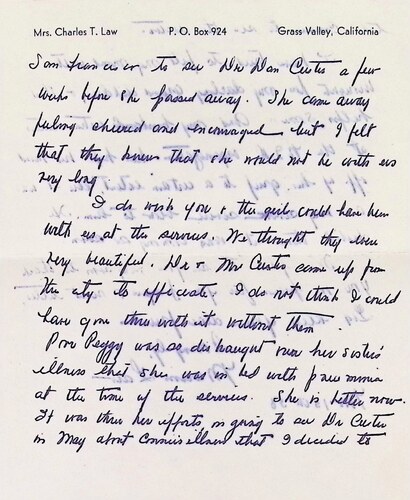 Mrs. Charles T. Law P. O. Box 924 Grass Valley, California
San Francisco to see Dr Dan Custis a few
weeks before she passed away. She came away
feeling cheered and encouraged but I felt
that they knew that she would not be with us
very long
I do wish you & the girls could have been
with us at the services. We thought they were
very beautiful. Dr & Mrs Custis came up from
the city to officiate I do not think I could
have gone thru with it without them
Poor Peggy was so distraught over her sister's
illness that she was in bed with pneumonia
at the time of the services. She is better now.
It was thru her efforts, in going to see Dr Custis
in May about Connie's illness that I decided to